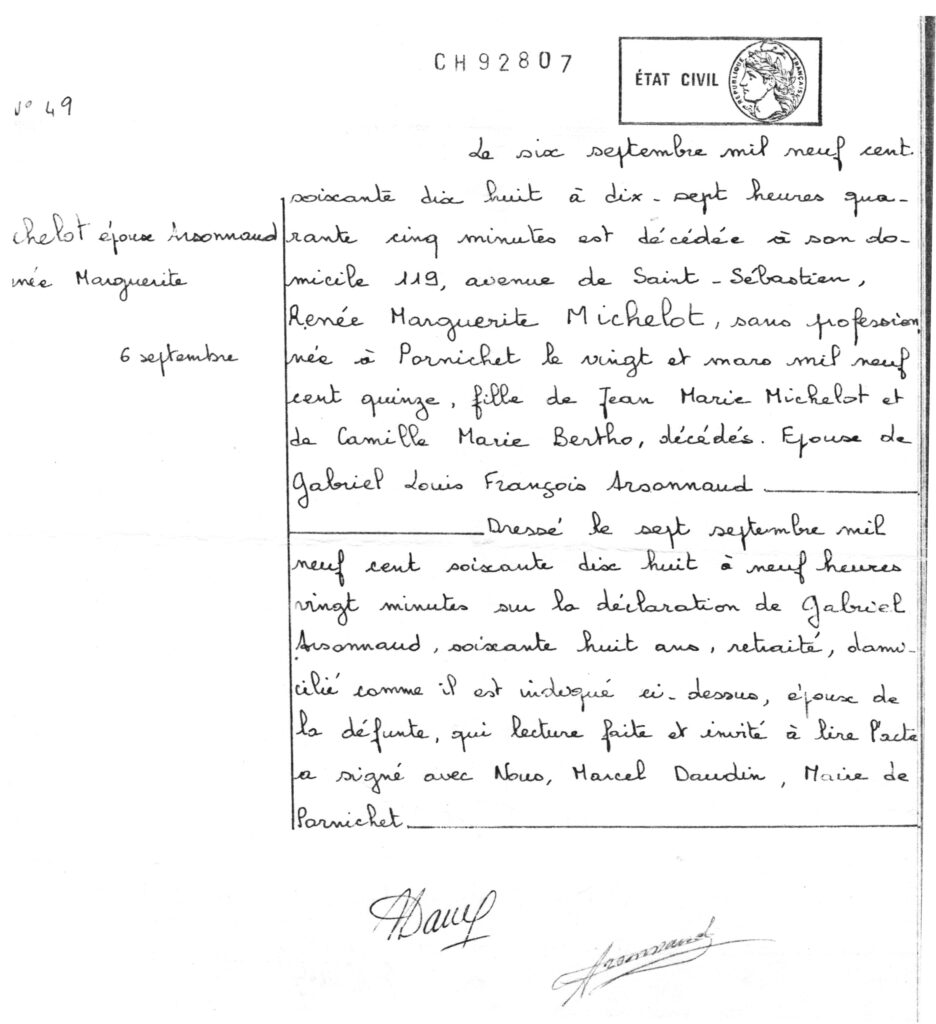 CH92807
ÉTAT CIVIL
RÉPUBLIQUE FRANÇAISE
N° 49
Le six septembre mil neuf cent
soixante dix huit à dix-sept heures qua-
rante cinq minutes est décédée à son do-
micile 119, avenue de Saint-Sébastien,
Renée Marguerite Michelot, sans profession
née à Pornichet le vingt et mars mil neuf
cent quinze, fille de Jean Marie Michelot et
de Camille Marie Bertho, décédés. Epouse de
Gabriel Louis François Arsonnaud
Dressé le sept septembre mil
neuf cent soixante dix huit à neuf heures
vingt minutes sur la déclaration de Gabriel
Arsonnaud, soixante huit ans, retraité, domi-
cilié comme il est indiqué ci-dessus, époux de
la défunte, qui lecture faite et invité à lire l'acte
a signé avec Nous, Marcel Daudin, Maire de
Pornichet
chelot épouse Arsonnaud
née Marguerite
6 septembre
Arsonnaud